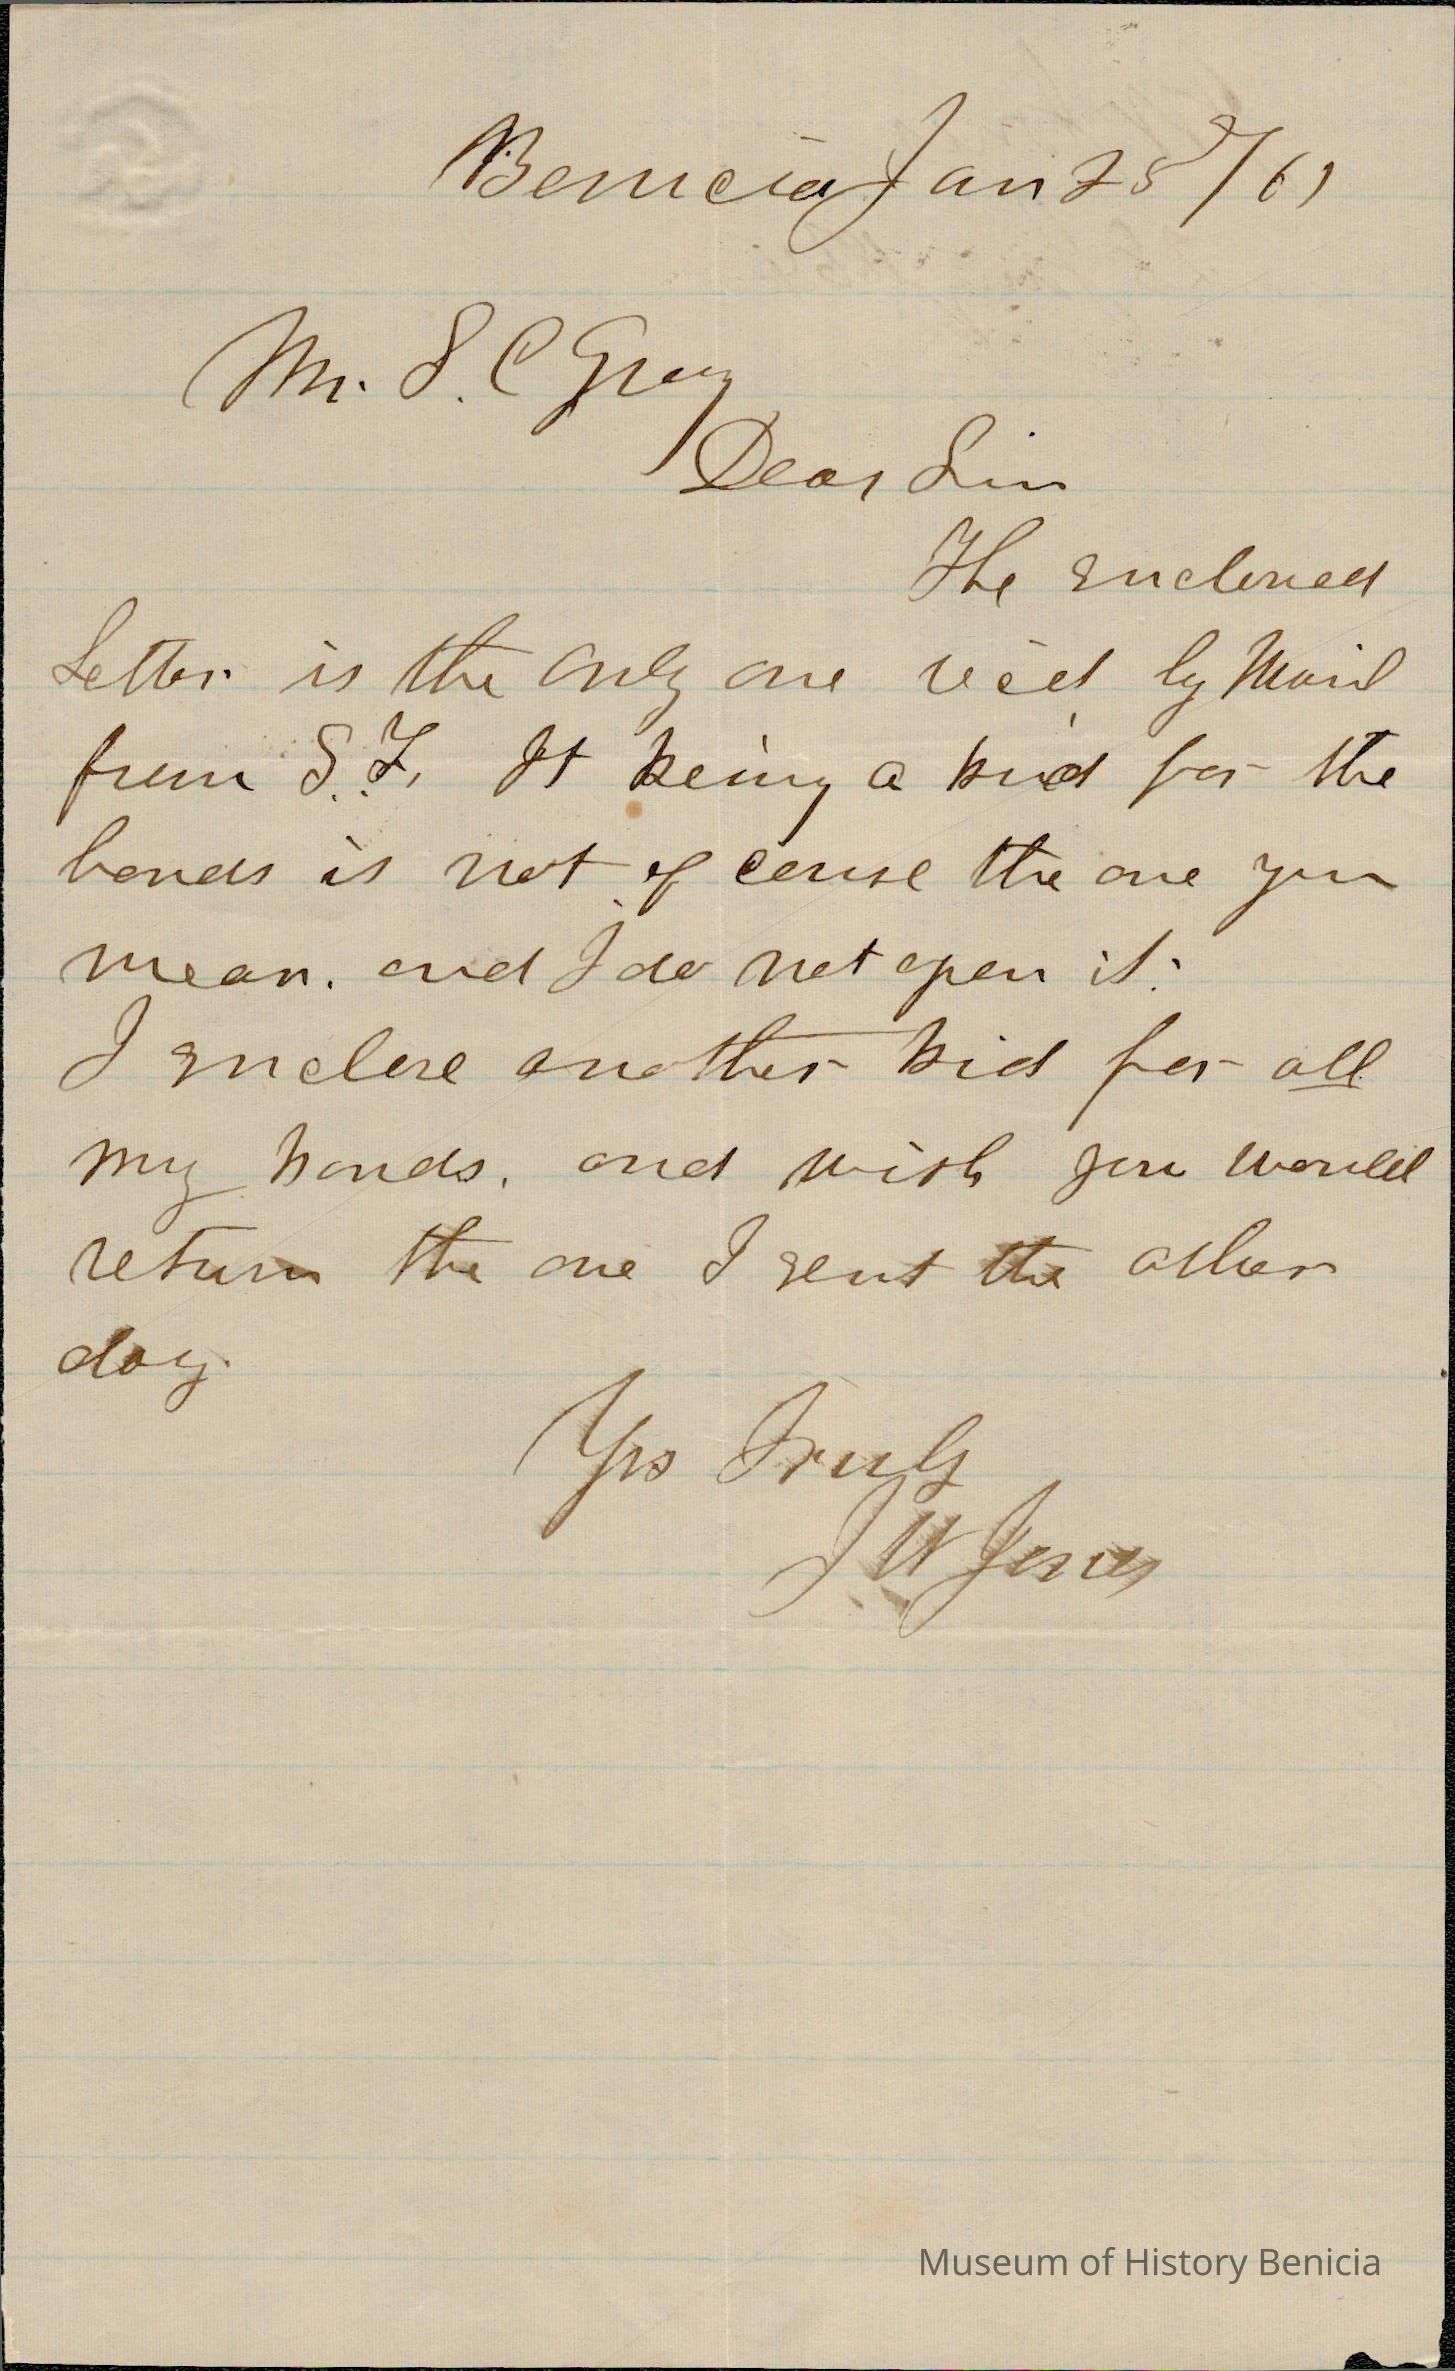 Benicia Jan 25/61
Mr. S. C Gray
Dear Sir
The enclosed
Letter is the only one rec'd by Mail
from S.F. It being a bid for the
bonds is not of couse the one you
mean. and I do not open it.
I enclose another bid for all
my bonds. and wish you would
return the one I sent the other
day.
Yrs Truly
J W Jones
Museum of History Benicia